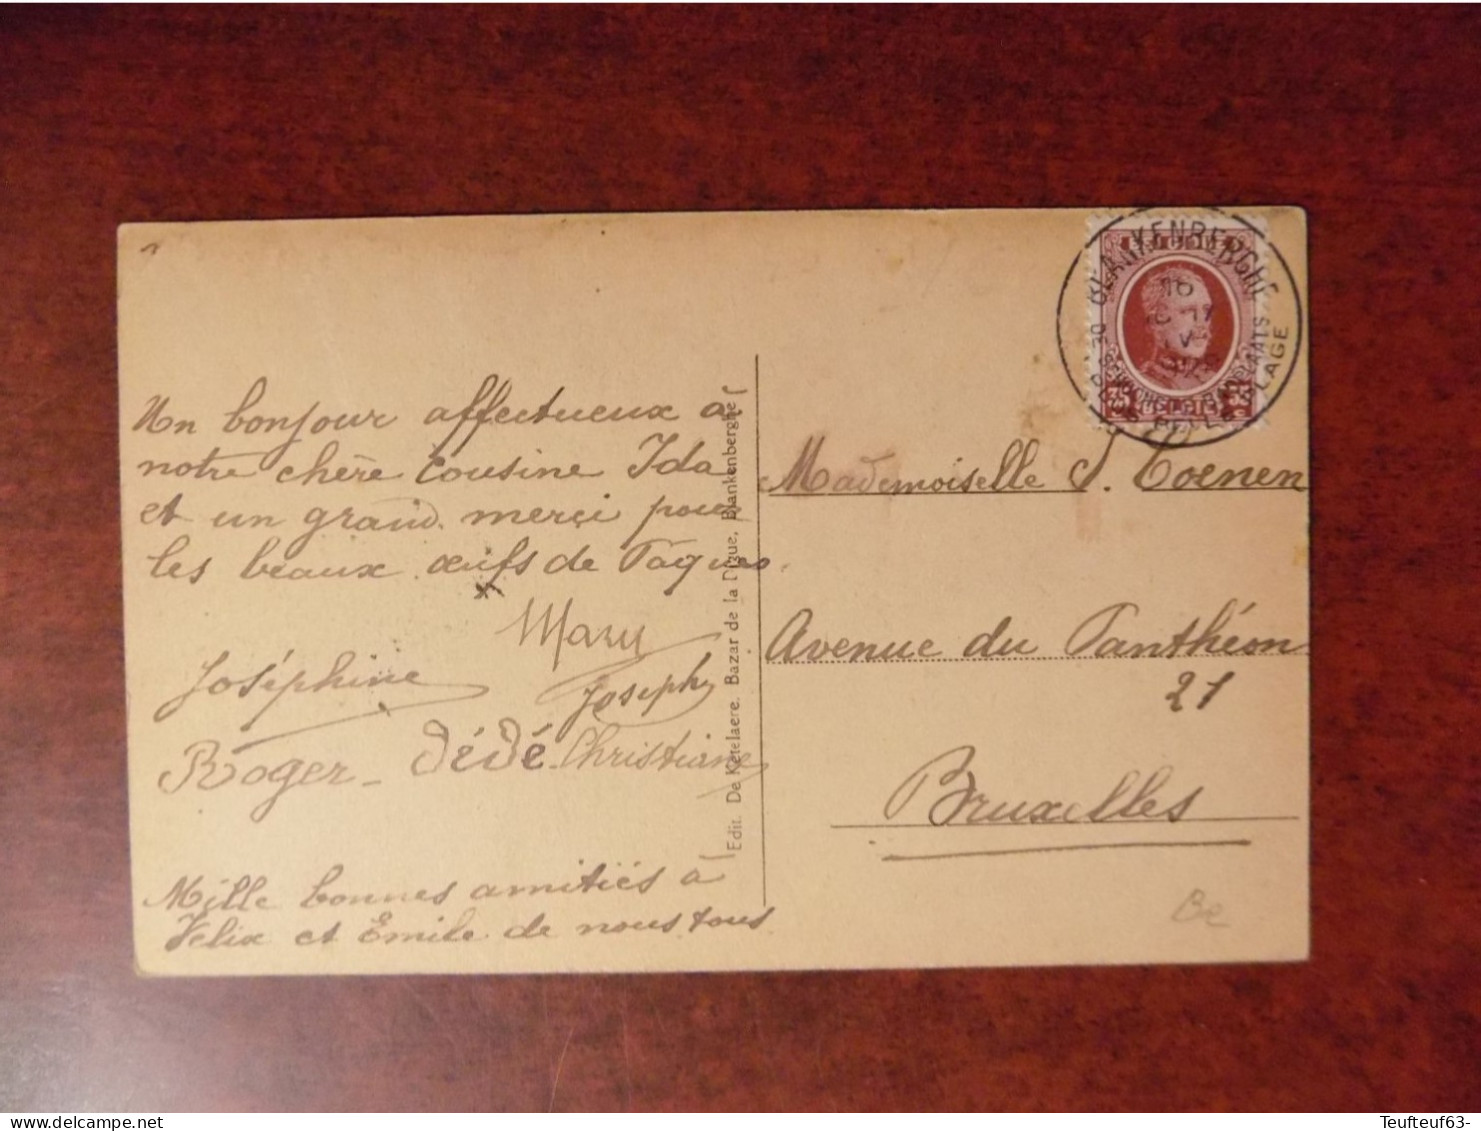 Un bonjour affectueux à
notre chère Cousine Ida
et un grand merci pour
les beaux œufs de Pâques.
Mary
Joséphine
Joseph
Roger - Dédé Christiane
Mille bonnes amitiés à
Felix et Emile de nous tous
Edit. De Ketelaere. Bazar de la Digue, Blankenberghe
BLANKENBERGHE
BADPLAATS
PLAGE
BELGIE
Mademoiselle I. Coenen
Avenue du Panthéon
21
Bruxelles
Be
Teufteuf63-